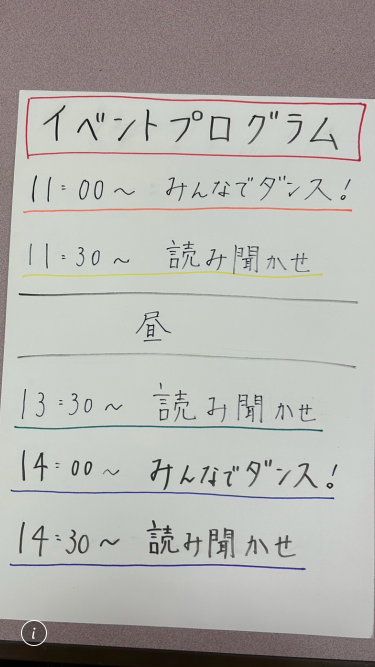 イベントプログラム
11:00～ みんなでダンス!
11:30～ 読み聞かせ
昼
13:30～ 読み聞かせ
14:00～ みんなでダンス!
14:30～ 読み聞かせ
i